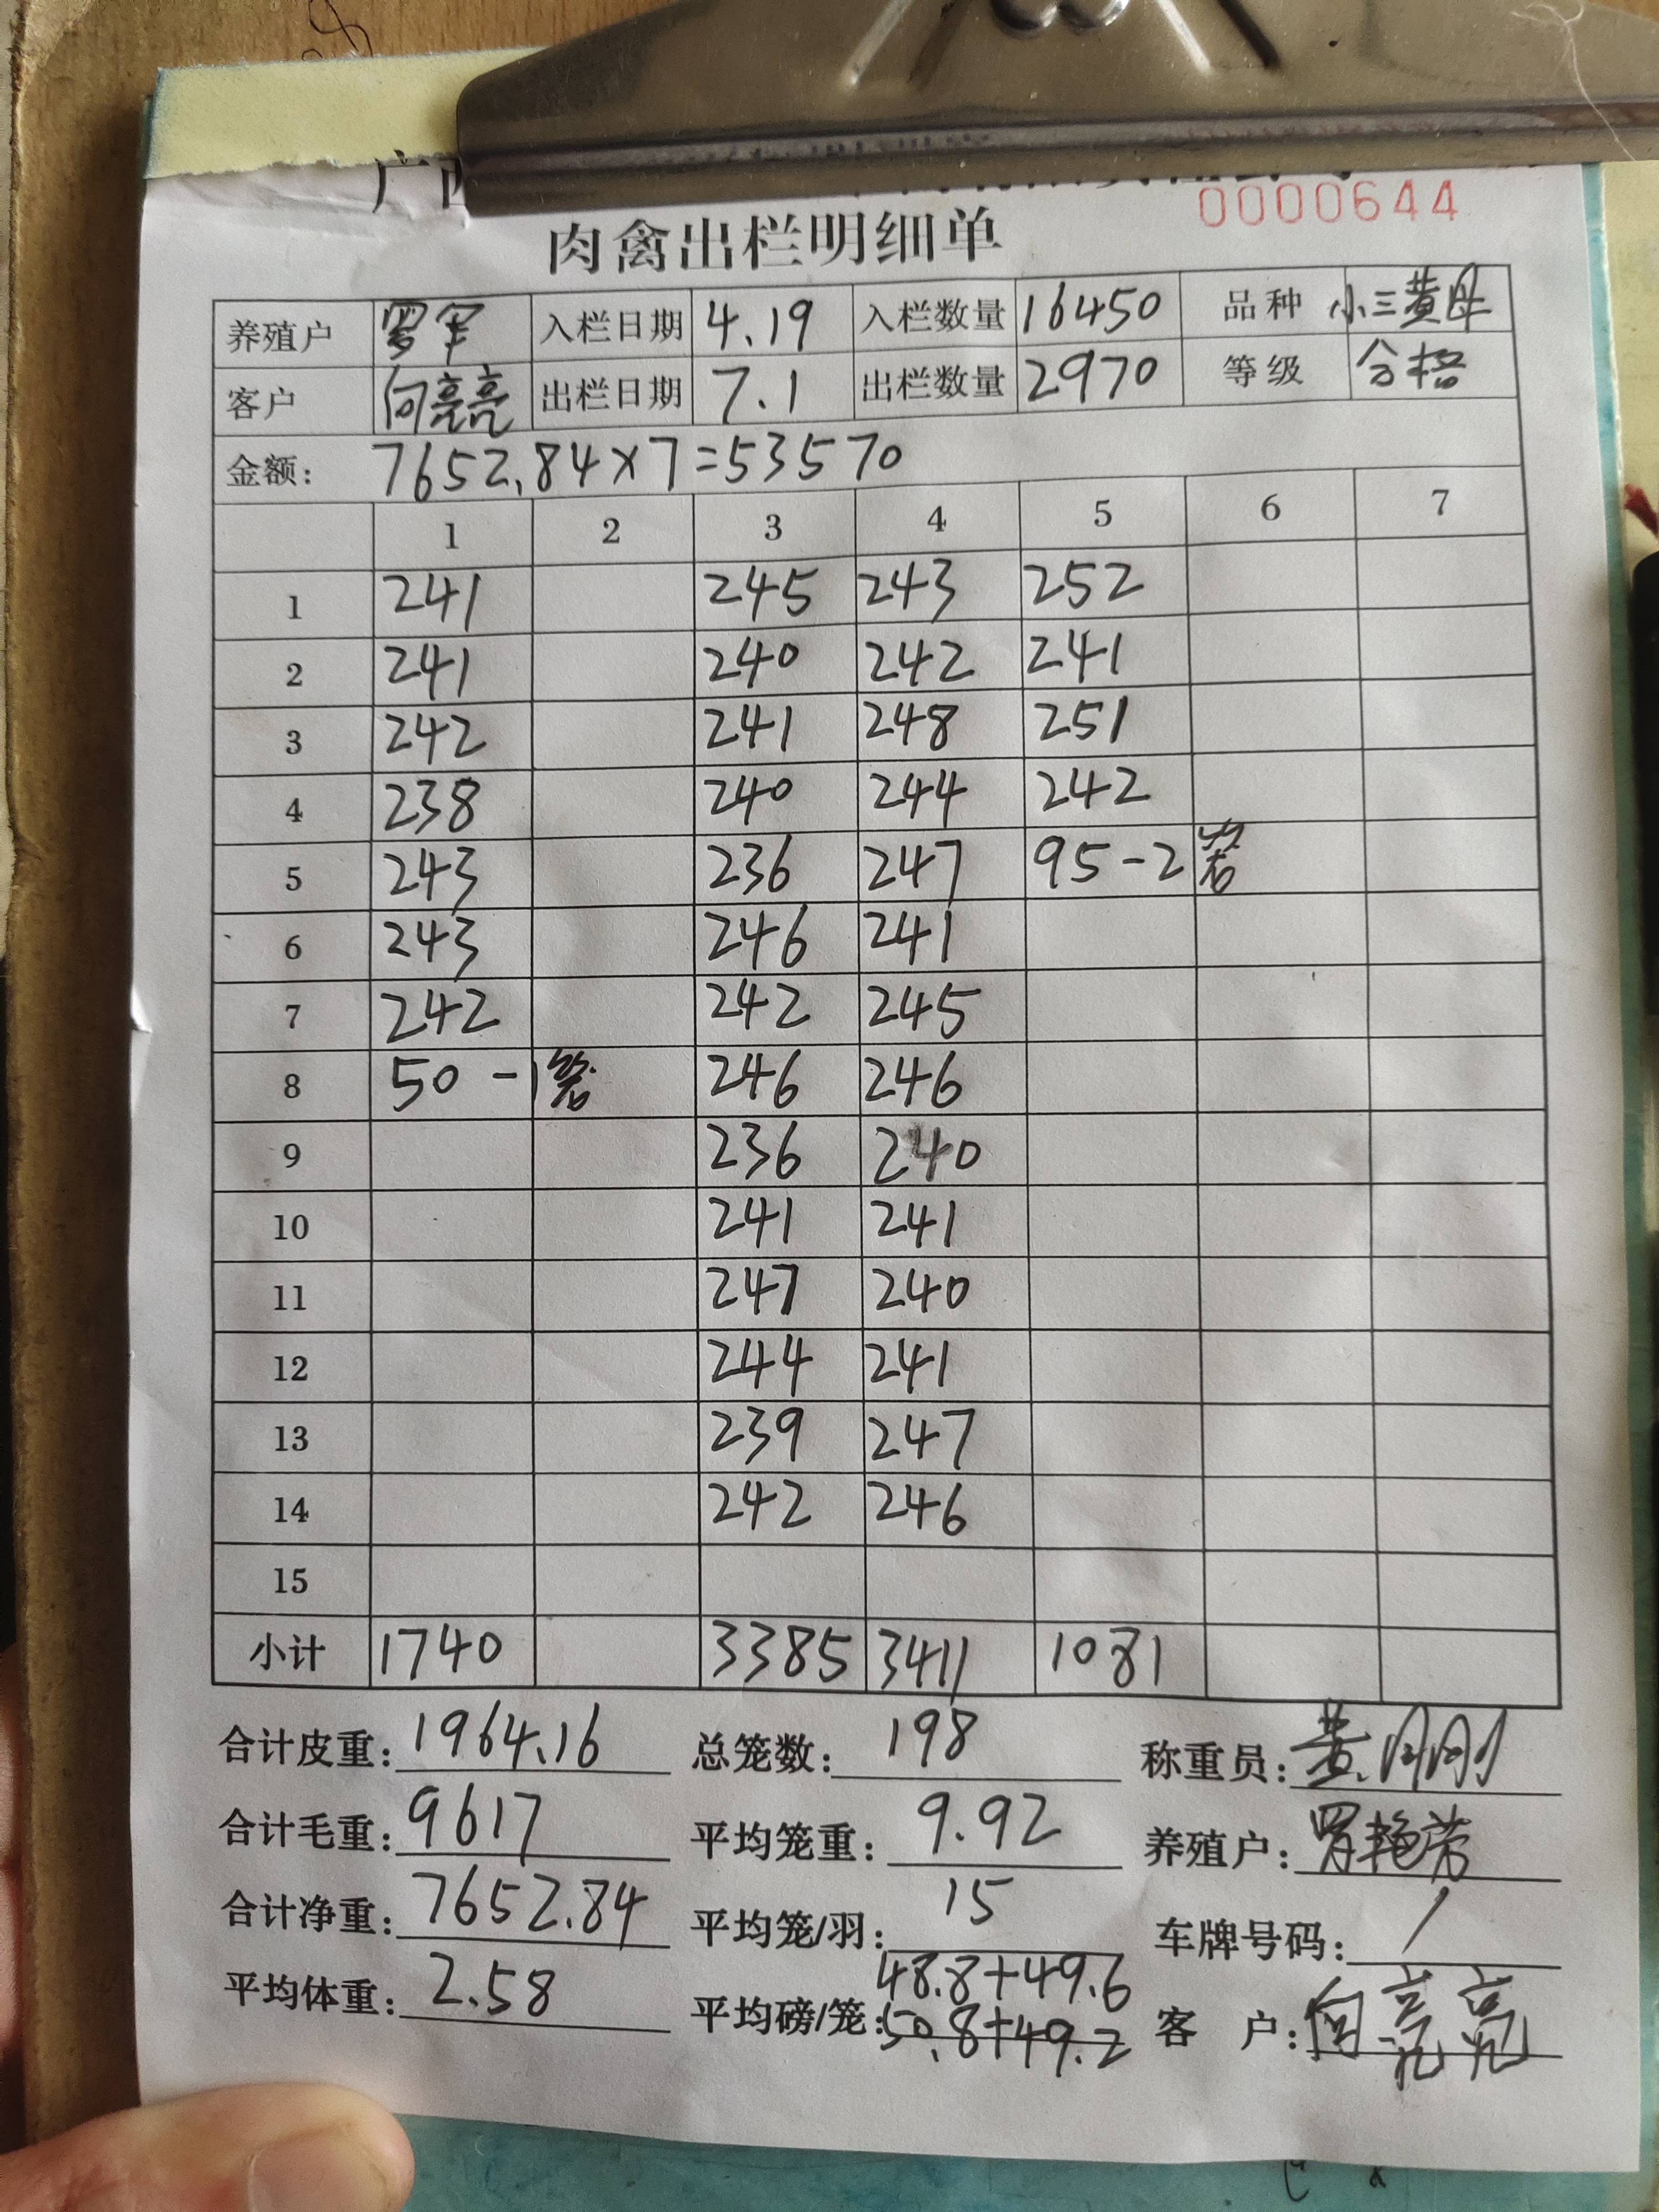 广西
0000644
肉禽出栏明细单
养殖户 罗军 入栏日期 4.19 入栏数量 16450 品种 小三黄母
客户 向亮亮 出栏日期 7.1 出栏数量 2970 等级 合格
金额: 7652.84×7=53570
1 2 3 4 5 6 7
1 241 245 243 252
2 241 240 242 241
3 242 241 248 251
4 238 240 244 242
5 243 236 247 95-2笼
6 243 246 241
7 242 242 245
8 50-1笼 246 246
9 236 240
10 241 241
11 247 240
12 244 241
13 239 247
14 242 246
15
小计 1740 3385 3411 1081
合计皮重: 1964.16 总笼数: 198 称重员:
合计毛重: 9617 平均笼重: 9.92 养殖户: 罗艳芳
合计净重: 7652.84 平均笼/羽: 15 车牌号码: /
平均体重: 2.58 平均磅/笼: 48.8+49.6 50.8+49.2 客 户: 向亮亮